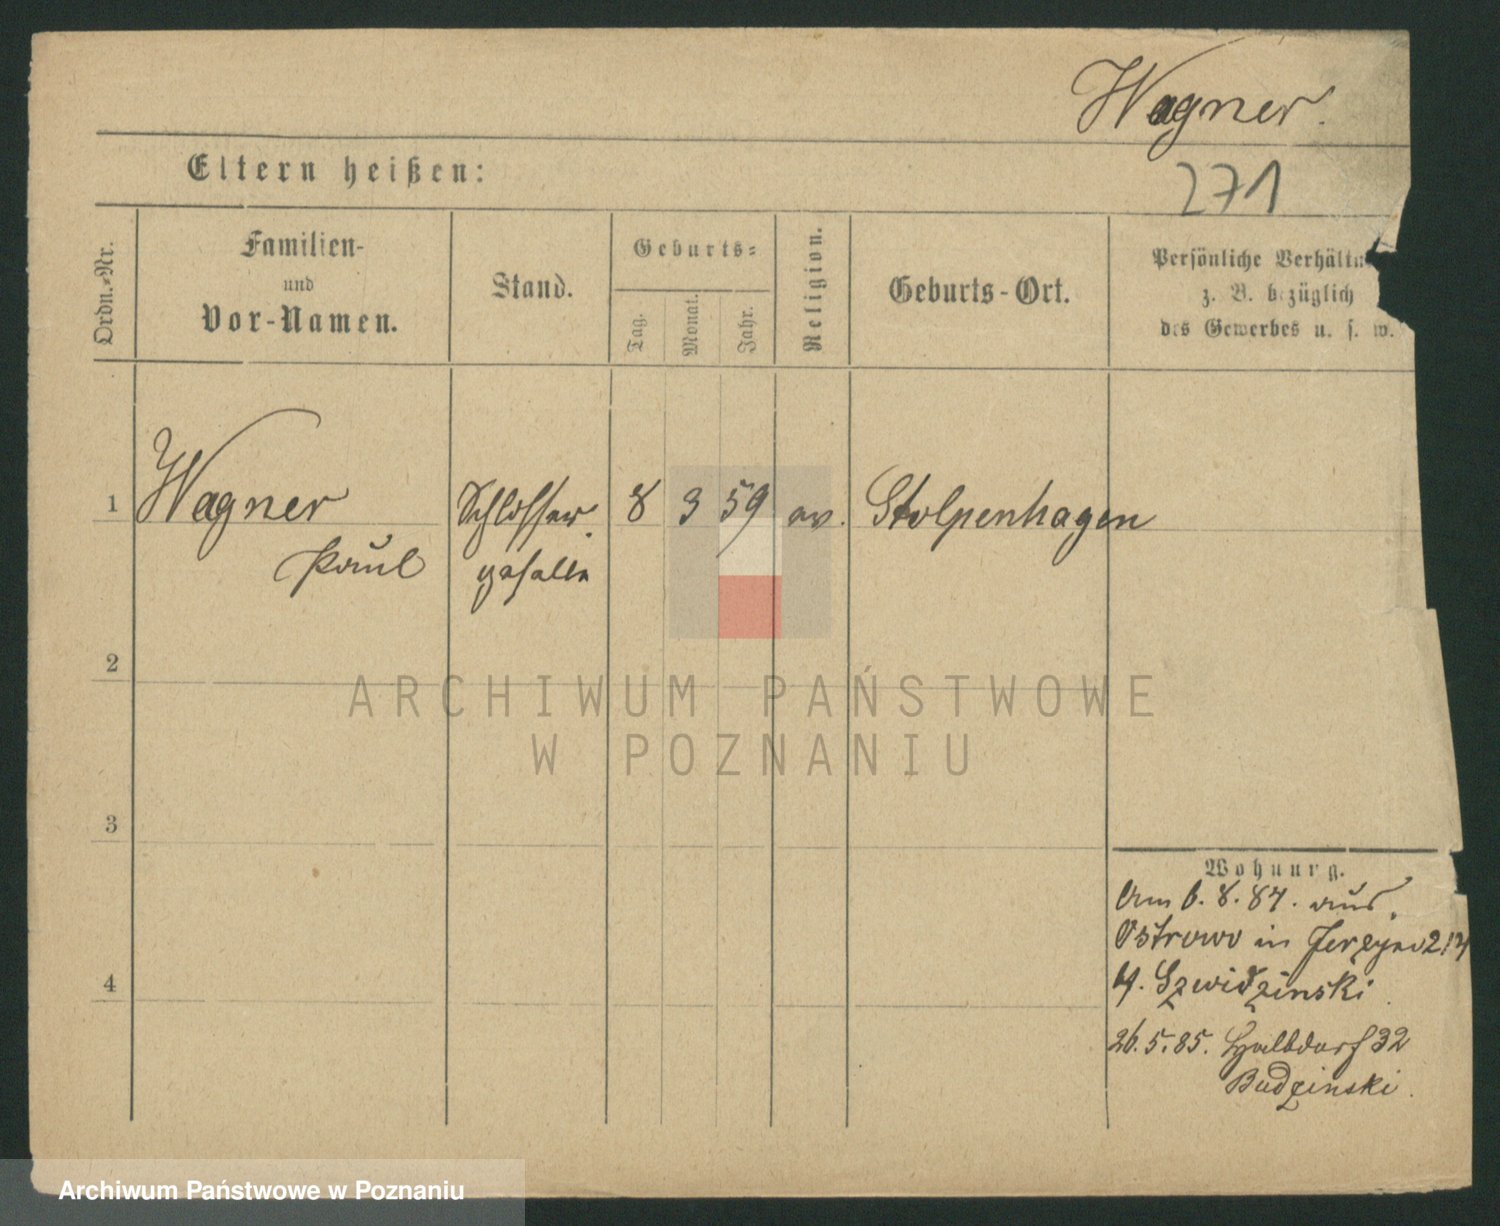 Wagner.
271
Eltern heißen:
Ordn.-Nr.
Familien-
und
Vor-Namen.
Stand.
Geburts-
Tag.
Monat.
Jahr.
Religion.
Geburts-Ort.
Persönliche Verhältn
z. B. bezüglich
des Gewerbes u. s. w.
1 Wagner Schlosser 8 3 59 ev. Stolpenhagen
Paul geselle
2
3
4
Wohnung.
Am 6. 8. 84. aus
Ostrowo in
Szwidzinski
26. 5. 85. Halbdorf 32
Budzinski.
ARCHIWUM PAŃSTWOWE
W POZNANIU
Archiwum Państwowe w Poznaniu